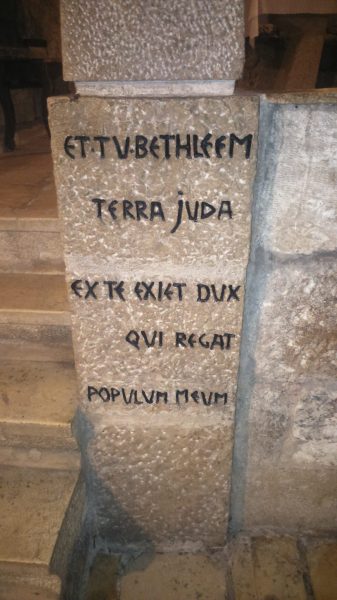 ET·TU·BETHLEEM
TERRA JUDA
EX TE EXIET DUX
QUI REGAT
POPULUM MEUM